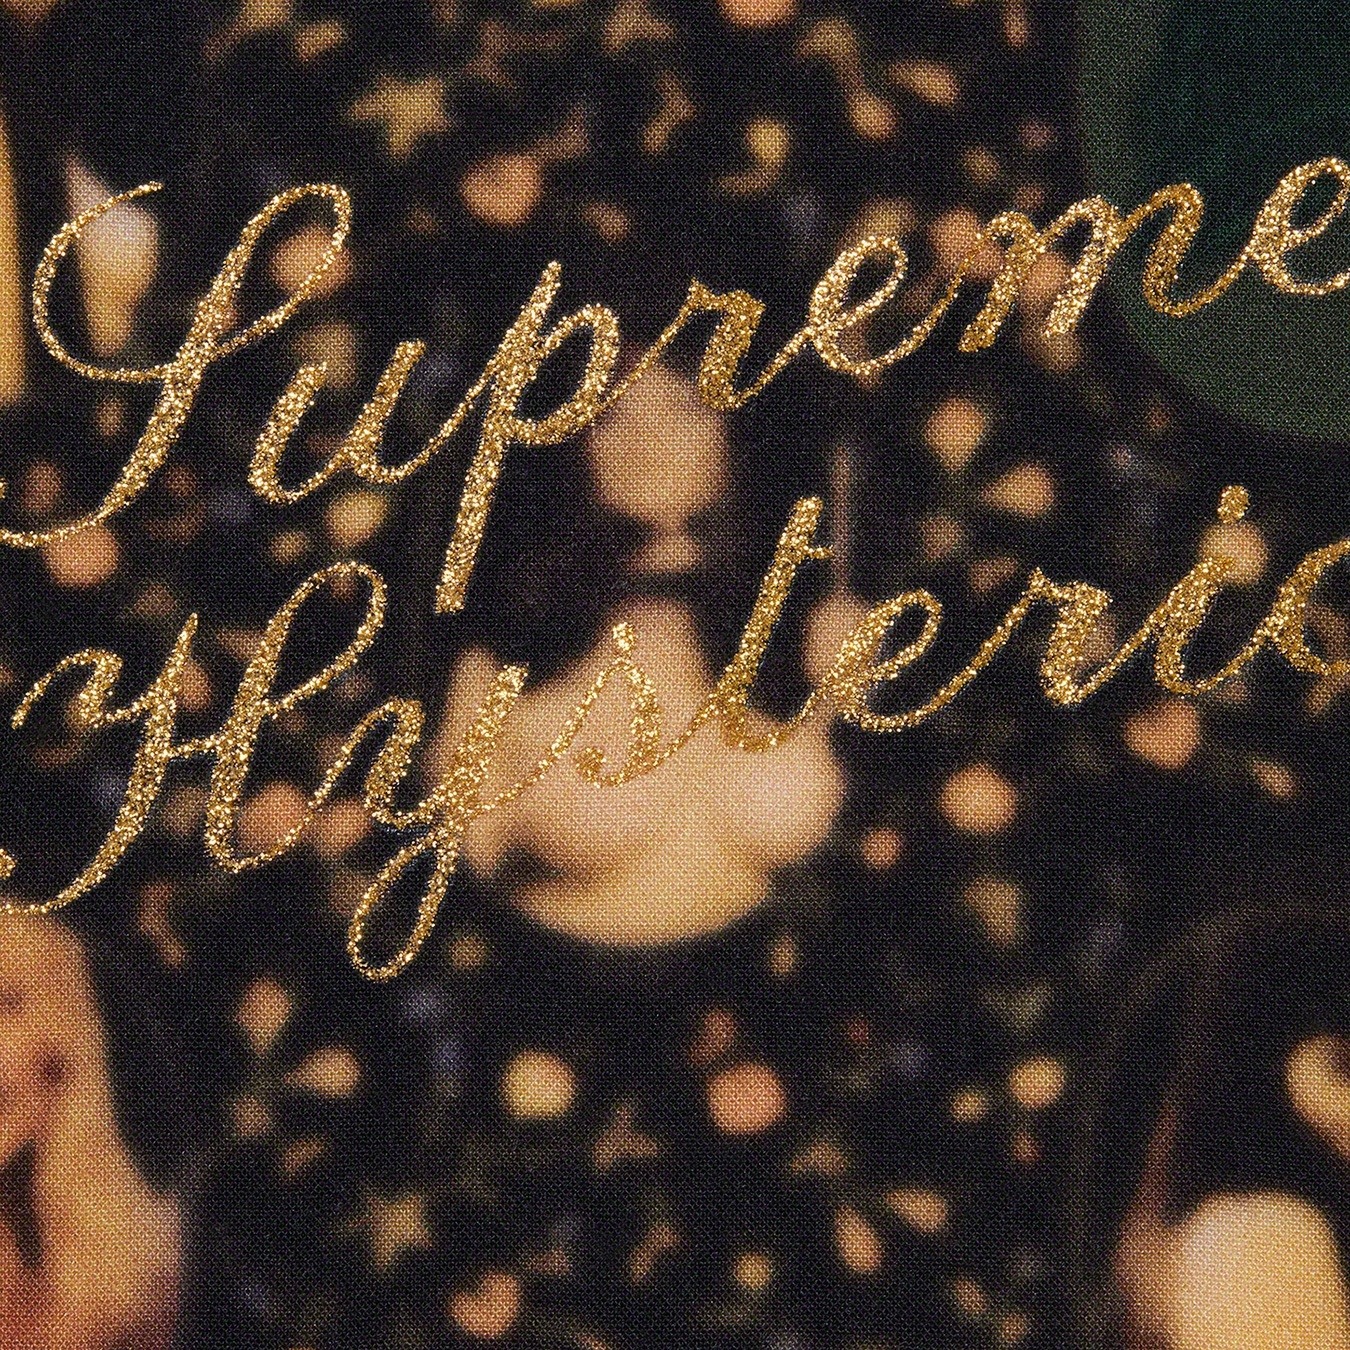 Supreme
Hysteric